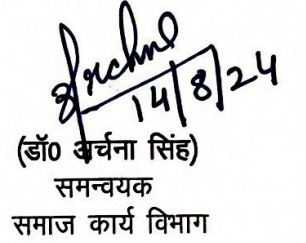 Archna
14/8/24
(डॉ0 अर्चना सिंह)
समन्वयक
समाज कार्य विभाग